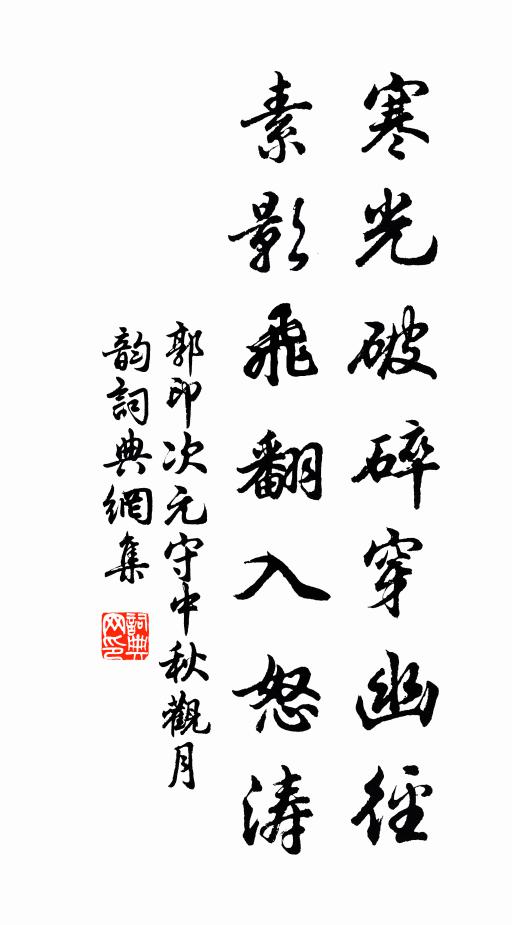 寒光破碎穿幽径
素影飛翻入怒涛
郭印次元守中秋觀月
韵詞典網集
詞典网印